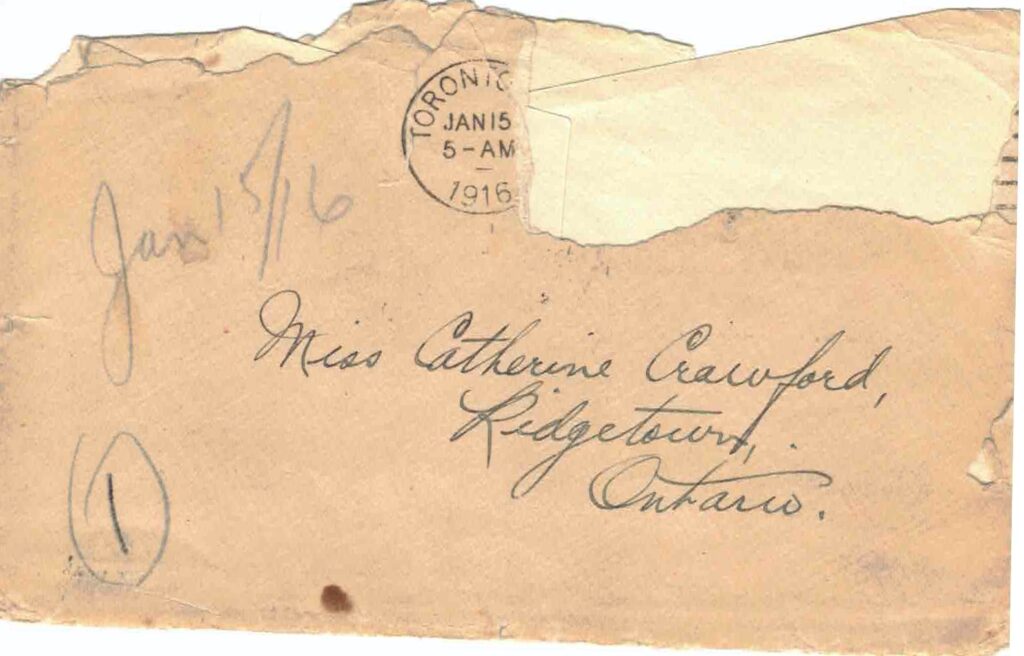 TORONTO
JAN 15
5-AM
1916
Jan 15/16
Miss Catherine Crawford,
Ridgetown,
Ontario.
1